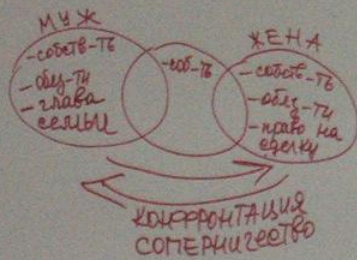 МУЖ
-собств-ть
-обяз-ти
-глава
семьи
-соб-ть
ЖЕНА
-собств-ть
-обяз-ти
-право на
сделку
КОНФРОНТАЦИЯ
СОПЕРНИЧЕСТВО